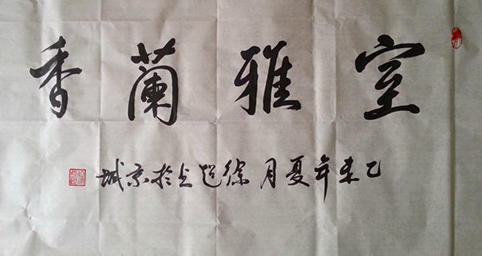 室雅蘭香
乙未年夏月徐超书於京城